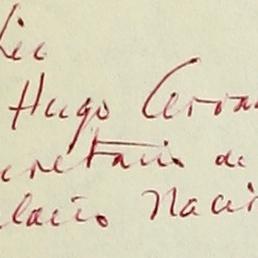 Lic
Hugo Cerva
cretario de
alacio Naci